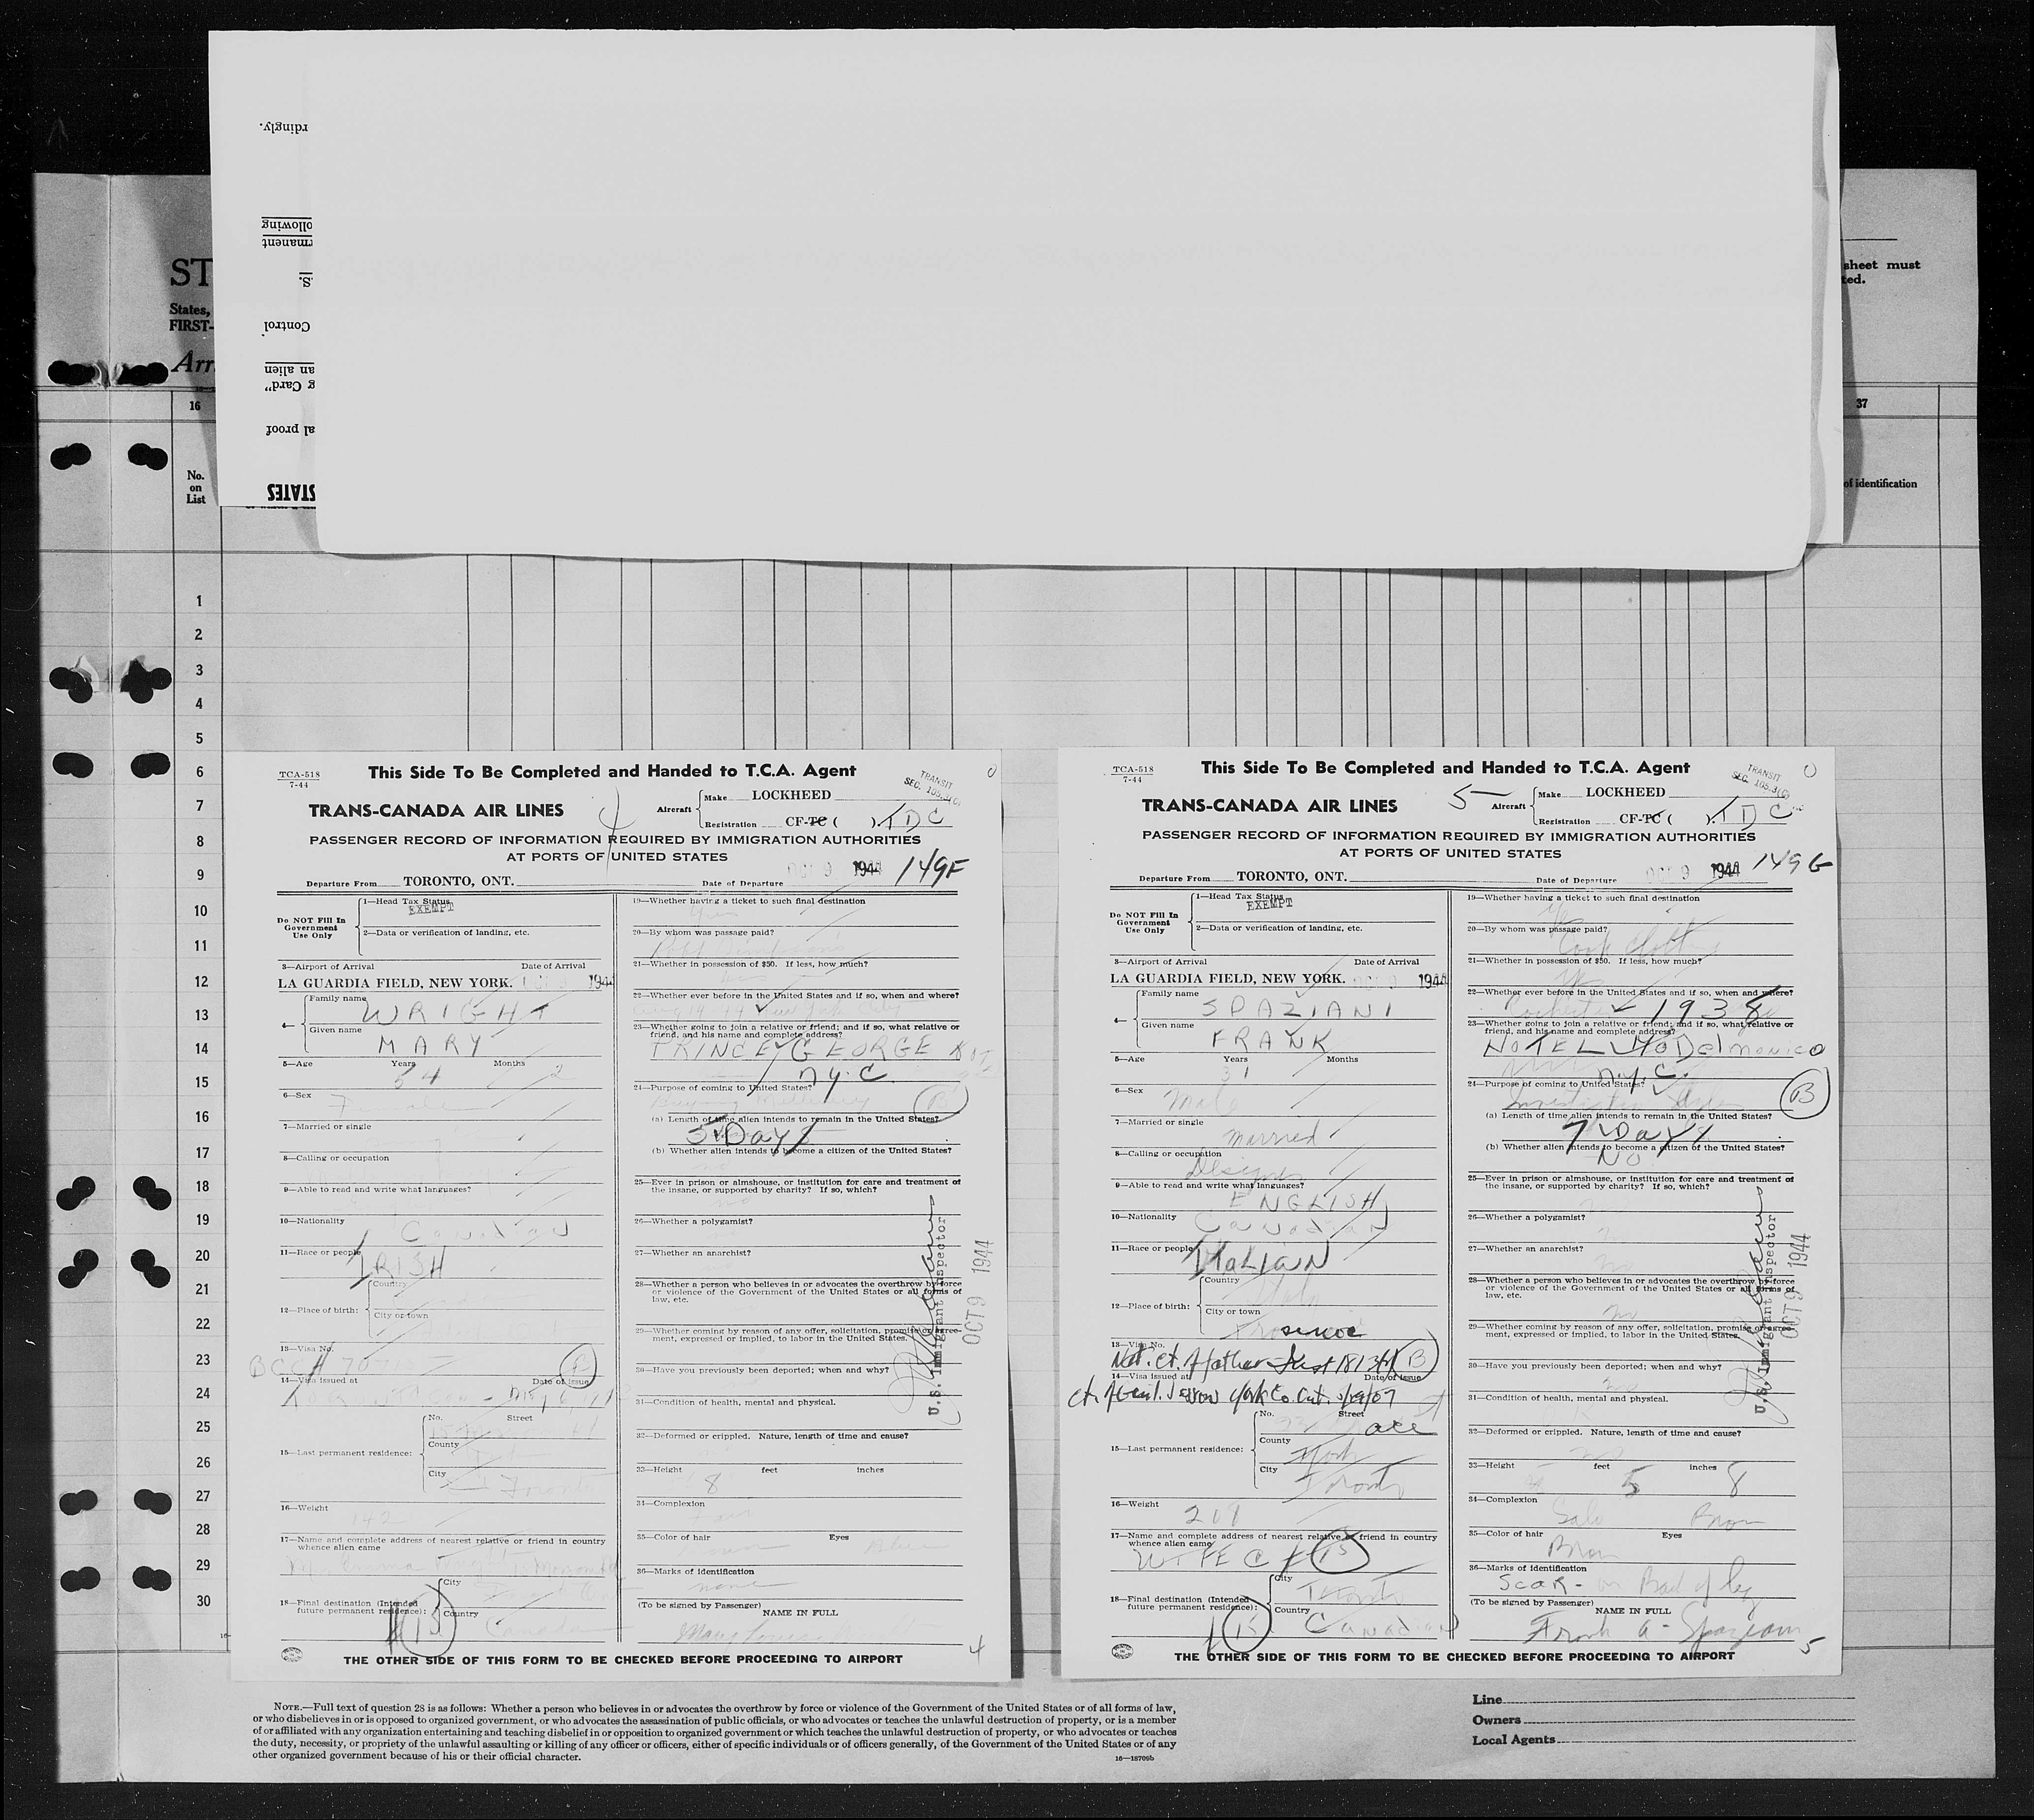 rdingly.
ollowing
rmanent
is.
Control
an alien
g Card"
al proof
STATES
ST
States,
FIRST-
Arr
sheet must
ted.
16
37
No.
on
List
of identification
1
2
3
4
5
6
7
8
9
10
11
12
13
14
15
16
17
18
19
20
21
22
23
24
25
26
27
28
29
30
TCA-518
7-44
This Side To Be Completed and Handed to T.C.A. Agent
TRANSIT
SEC. 105.3(C)
TRANS-CANADA AIR LINES
4
Aircraft
Make LOCKHEED
Registration CF-TC ( ). TDC
PASSENGER RECORD OF INFORMATION REQUIRED BY IMMIGRATION AUTHORITIES
AT PORTS OF UNITED STATES
Departure From TORONTO, ONT.
Date of Departure OCT 9 1944 149F
Do NOT Fill In
Government
Use Only
1—Head Tax Status
EXEMPT
2—Data or verification of landing, etc.
3—Airport of Arrival Date of Arrival
LA GUARDIA FIELD, NEW YORK. OCT 9 1944
4—
Family name
WRIGHT
Given name
MARY
5—Age Years Months
54 2
6—Sex
Female
7—Married or single
8—Calling or occupation
9—Able to read and write what languages?
10—Nationality
Canadian
11—Race or people
IRISH
12—Place of birth:
Country
City or town
13—Visa No.
BCCA 707
14—Visa issued at Date of Issue
15—Last permanent residence:
No. Street
County
City
Toronto
16—Weight
142
17—Name and complete address of nearest relative or friend in country
whence alien came
18—Final destination (Intended
future permanent residence):
City
Country
Canada
19—Whether having a ticket to such final destination
Yes
20—By whom was passage paid?
21—Whether in possession of $50. If less, how much?
22—Whether ever before in the United States and if so, when and where?
23—Whether going to join a relative or friend; and if so, what relative or
friend, and his name and complete address?
PRINCE GEORGE HOT
N.Y.C.
24—Purpose of coming to United States?
Buying Millinery B
(a) Length of time alien intends to remain in the United States?
5 Days
(b) Whether alien intends to become a citizen of the United States?
no
25—Ever in prison or almshouse, or institution for care and treatment of
the insane, or supported by charity? If so, which?
no
26—Whether a polygamist?
27—Whether an anarchist?
28—Whether a person who believes in or advocates the overthrow by force
or violence of the Government of the United States or all forms of
law, etc.
29—Whether coming by reason of any offer, solicitation, promise or agree-
ment, expressed or implied, to labor in the United States.
30—Have you previously been deported; when and why?
31—Condition of health, mental and physical.
32—Deformed or crippled. Nature, length of time and cause?
33—Height feet inches
8
34—Complexion
Fair
35—Color of hair Eyes
Blue
36—Marks of identification
none
(To be signed by Passenger)
NAME IN FULL
U.S. Immigrant Inspector
OCT 9 1944
4
THE OTHER SIDE OF THIS FORM TO BE CHECKED BEFORE PROCEEDING TO AIRPORT
TCA-518
7-44
This Side To Be Completed and Handed to T.C.A. Agent
TRANSIT
SEC. 105.3(C)
TRANS-CANADA AIR LINES
5
Aircraft
Make LOCKHEED
Registration CF-TC ( ). TDC
PASSENGER RECORD OF INFORMATION REQUIRED BY IMMIGRATION AUTHORITIES
AT PORTS OF UNITED STATES
Departure From TORONTO, ONT.
Date of Departure OCT 9 1944 149G
Do NOT Fill In
Government
Use Only
1—Head Tax Status
EXEMPT
2—Data or verification of landing, etc.
3—Airport of Arrival Date of Arrival
LA GUARDIA FIELD, NEW YORK. OCT 9 1944
4—
Family name
SPAZIANI
Given name
FRANK
5—Age Years Months
31
6—Sex
Male
7—Married or single
Married
8—Calling or occupation
Designer
9—Able to read and write what languages?
ENGLISH
10—Nationality
Canadian
11—Race or people
ITALIAN
12—Place of birth:
Country
Italy
City or town
13—Visa No.
Nat. Ct. of father
14—Visa issued at Date of Issue
15—Last permanent residence:
No. Street
ave
County
York
City
Toronto
16—Weight
201
17—Name and complete address of nearest relative or friend in country
whence alien came
WIFE C/ 15
18—Final destination (Intended
future permanent residence):
15
City
Toronto
Country
Canadian
19—Whether having a ticket to such final destination
20—By whom was passage paid?
21—Whether in possession of $50. If less, how much?
22—Whether ever before in the United States and if so, when and where?
Rochester 1938
23—Whether going to join a relative or friend; and if so, what relative or
friend, and his name and complete address?
HOTEL Delmonico
N.Y.C.
24—Purpose of coming to United States?
B
(a) Length of time alien intends to remain in the United States?
7 Days
(b) Whether alien intends to become a citizen of the United States?
NO
25—Ever in prison or almshouse, or institution for care and treatment of
the insane, or supported by charity? If so, which?
26—Whether a polygamist?
27—Whether an anarchist?
28—Whether a person who believes in or advocates the overthrow by force
or violence of the Government of the United States or all forms of
law, etc.
29—Whether coming by reason of any offer, solicitation, promise or agree-
ment, expressed or implied, to labor in the United States.
30—Have you previously been deported; when and why?
31—Condition of health, mental and physical.
32—Deformed or crippled. Nature, length of time and cause?
33—Height feet inches
5 8
34—Complexion
35—Color of hair Eyes
Brown
36—Marks of identification
SCAR - on Back of leg
(To be signed by Passenger)
NAME IN FULL
Frank A. Spaziani
U.S. Immigrant Inspector
OCT 9 1944
5
THE OTHER SIDE OF THIS FORM TO BE CHECKED BEFORE PROCEEDING TO AIRPORT
NOTE.—Full text of question 28 is as follows: Whether a person who believes in or advocates the overthrow by force or violence of the Government of the United States or of all forms of law,
or who disbelieves in or is opposed to organized government, or who advocates the assassination of public officials, or who advocates or teaches the unlawful destruction of property, or is a member
of or affiliated with any organization entertaining and teaching disbelief in or opposition to organized government or which teaches the unlawful destruction of property, or who advocates or teaches
the duty, necessity, or propriety of the unlawful assaulting or killing of any officer or officers, either of specific individuals or of officers generally, of the Government of the United States or of any
other organized government because of his or their official character.
16—18709b
Line
Owners
Local Agents